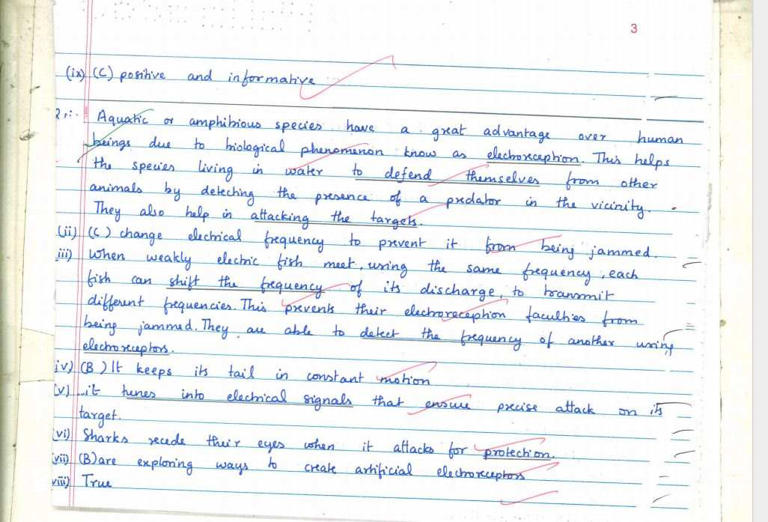 3
(ix) (C) positive and informative
2.i- Aquatic or amphibious species have a great advantage over human
beings due to biological phenomenon know as electroreception. This helps
the species living in water to defend themselves from other
animals by detecting the presence of a predator in the vicinity.
They also help in attacking the targets.
(ii) (C) change electrical frequency to prevent it from being jammed.
iii) When weakly electric fish meet, using the same frequency, each
fish can shift the frequency of its discharge, to transmit
different frequencies. This prevents their electroreception faculties from
being jammed. They are able to detect the frequency of another using
electroreceptors.
iv) (B) It keeps its tail in constant motion
(v) it tunes into electrical signals that ensure precise attack on its
target.
(vi) Sharks recede their eyes when it attacks for protection.
(vii) (B) are exploring ways to create artificial electroreceptors
viii) True